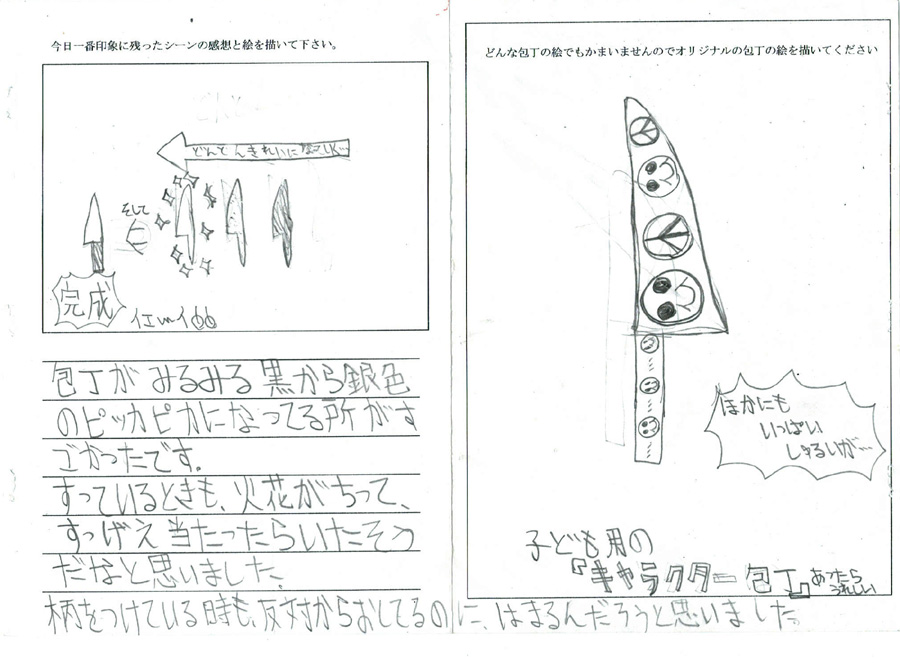 今日一番印象に残ったシーンの感想と絵を描いて下さい。
どんどんきれいになってく…
そして
完成
イエーイ
包丁がみるみる黒から銀色
のピッカピカになってる所がす
ごかったです。
すっているときも、火花がちって、
すっげえ当たったらいたそう
だなと思いました。
柄をつけている時も、反対からおしてるのに、はまるんだろうと思いました。
どんな包丁の絵でもかまいませんのでオリジナルの包丁の絵を描いてください
ほかにも
いっぱい
しゅるいが…
子ども用の
『キャラクター包丁』あったら
うれしい